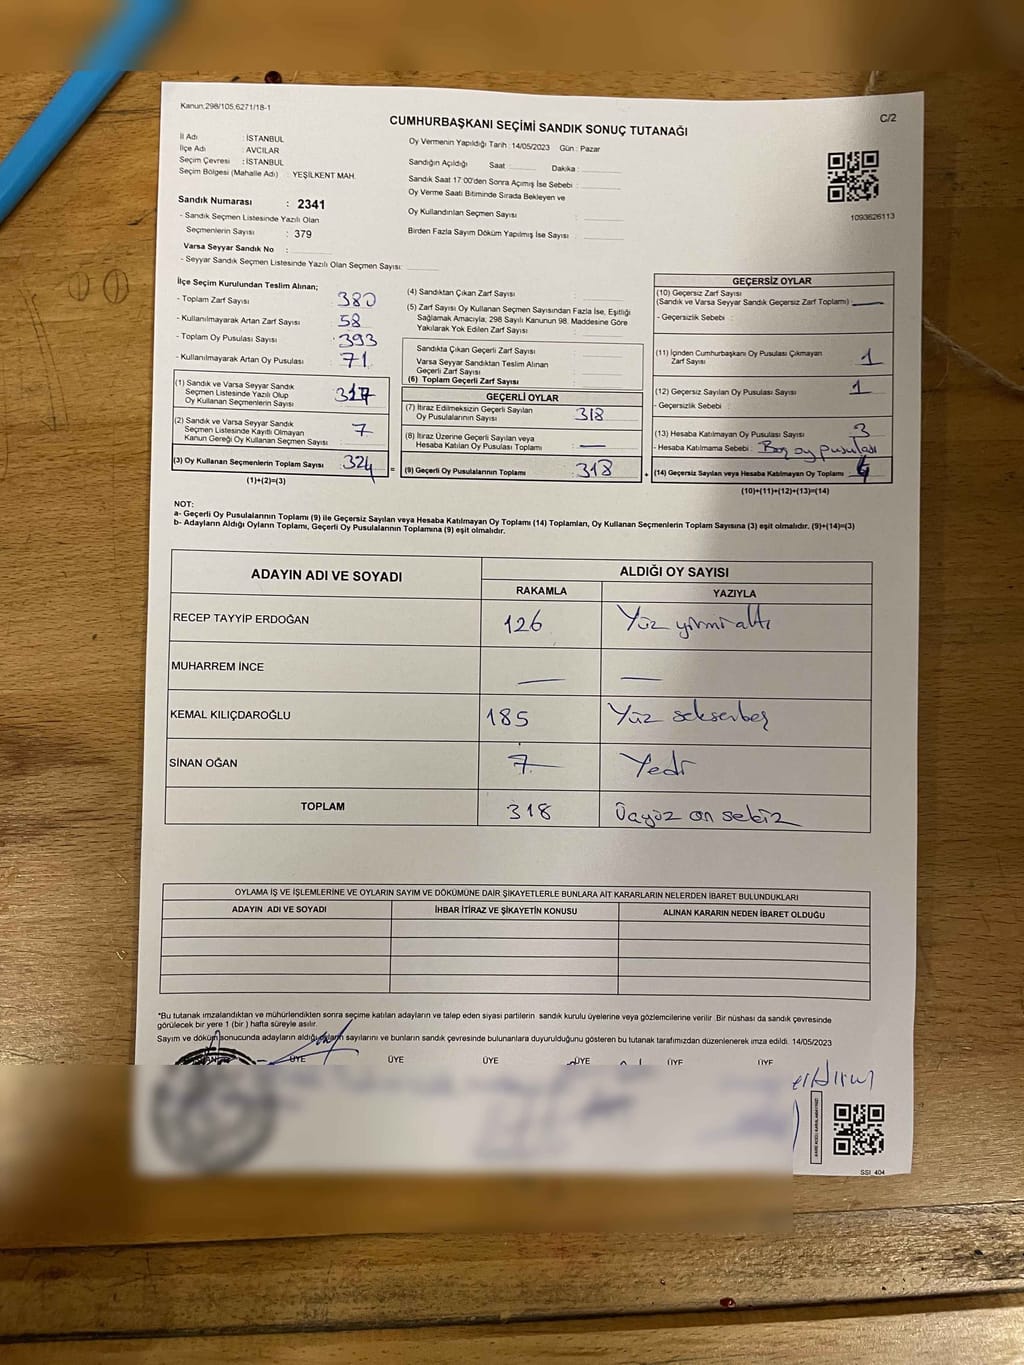 Kanun;298/105,6271/18-1
C/2
CUMHURBAŞKANI SEÇİMİ SANDIK SONUÇ TUTANAĞI
İl Adı : İSTANBUL
İlçe Adı : AVCILAR
Seçim Çevresi : İSTANBUL
Seçim Bölgesi (Mahalle Adı) : YEŞİLKENT MAH.
Oy Vermenin Yapıldığı Tarih : 14/05/2023 Gün : Pazar
Sandığın Açıldığı Saat Dakika :
Sandık Saat 17:00'den Sonra Açımış İse Sebebi :
Oy Verme Saati Bitiminde Sırada Bekleyen ve
Oy Kullandırılan Seçmen Sayısı :
Birden Fazla Sayım Döküm Yapılmış İse Sayısı :
1093626113
Sandık Numarası : 2341
- Sandık Seçmen Listesinde Yazılı Olan
Seçmenlerin Sayısı : 379
Varsa Seyyar Sandık No :
- Seyyar Sandık Seçmen Listesinde Yazılı Olan Seçmen Sayısı:
İlçe Seçim Kurulundan Teslim Alınan;
- Toplam Zarf Sayısı 380
- Kullanılmayarak Artan Zarf Sayısı 58
- Toplam Oy Pusulası Sayısı 393
- Kullanılmayarak Artan Oy Pusulası 71
(1) Sandık ve Varsa Seyyar Sandık
Seçmen Listesinde Yazılı Olup
Oy Kullanan Seçmenlerin Sayısı 317
(2) Sandık ve Varsa Seyyar Sandık
Seçmen Listesinde Kayıtlı Olmayan
Kanun Gereği Oy Kullanan Seçmen Sayısı : 7
(3) Oy Kullanan Seçmenlerin Toplam Sayısı 324
(1)+(2)=(3)
=
(4) Sandıktan Çıkan Zarf Sayısı :
(5) Zarf Sayısı Oy Kullanan Seçmen Sayısından Fazla İse, Eşitliği
Sağlamak Amacıyla; 298 Sayılı Kanunun 98. Maddesine Göre
Yakılarak Yok Edilen Zarf Sayısı :
Sandıkta Çıkan Geçerli Zarf Sayısı :
Varsa Seyyar Sandıktan Teslim Alınan
Geçerli Zarf Sayısı :
(6) Toplam Geçerli Zarf Sayısı :
GEÇERLİ OYLAR
(7) İtiraz Edilmeksizin Geçerli Sayılan
Oy Pusulalarının Sayısı : 318
(8) İtiraz Üzerine Geçerli Sayılan veya
Hesaba Katılan Oy Pusulası Toplamı : —
(9) Geçerli Oy Pusulalarının Toplamı : 318
+
GEÇERSİZ OYLAR
(10) Geçersiz Zarf Sayısı
(Sandık ve Varsa Seyyar Sandık Geçersiz Zarf Toplamı) —
- Geçersizlik Sebebi :
(11) İçinden Cumhurbaşkanı Oy Pusulası Çıkmayan
Zarf Sayısı 1
(12) Geçersiz Sayılan Oy Pusulası Sayısı 1
- Geçersizlik Sebebi :
(13) Hesaba Katılmayan Oy Pusulası Sayısı 3
- Hesaba Katılmama Sebebi : Boş oy pusulası
(14) Geçersiz Sayılan veya Hesaba Katılmayan Oy Toplamı
(10)+(11)+(12)+(13)=(14)
NOT:
a- Geçerli Oy Pusulalarının Toplamı (9) ile Geçersiz Sayılan veya Hesaba Katılmayan Oy Toplamı (14) Toplamları, Oy Kullanan Seçmenlerin Toplam Sayısına (3) eşit olmalıdır. (9)+(14)=(3)
b- Adayların Aldığı Oyların Toplamı, Geçerli Oy Pusulalarının Toplamına (9) eşit olmalıdır.
ADAYIN ADI VE SOYADI
ALDIĞI OY SAYISI
RAKAMLA YAZIYLA
RECEP TAYYİP ERDOĞAN 126 Yüz yirmi altı
MUHARREM İNCE — —
KEMAL KILIÇDAROĞLU 185 Yüz seksenbeş
SİNAN OĞAN 7 Yedi
TOPLAM 318 Üçyüz on sekiz
OYLAMA İŞ VE İŞLEMLERİNE VE OYLARIN SAYIM VE DÖKÜMÜNE DAİR ŞİKAYETLERLE BUNLARA AİT KARARLARIN NELERDEN İBARET BULUNDUKLARI
ADAYIN ADI VE SOYADI İHBAR İTİRAZ VE ŞİKAYETİN KONUSU ALINAN KARARIN NEDEN İBARET OLDUĞU
*Bu tutanak imzalandıktan ve mühürlendikten sonra seçime katılan adayların ve talep eden siyasi partilerin sandık kurulu üyelerine veya gözlemcilerine verilir. Bir nüshası da sandık çevresinde
görülecek bir yere 1 (bir) hafta süreyle asılır.
Sayım ve döküm sonucunda adayların aldığı oyların sayılarını ve bunların sandık çevresinde bulunanlara duyurulduğunu gösteren bu tutanak tarafımızdan düzenlenerek imza edildi. 14/05/2023
ÜYE ÜYE ÜYE ÜYE ÜYE ÜYE
SSİ_404